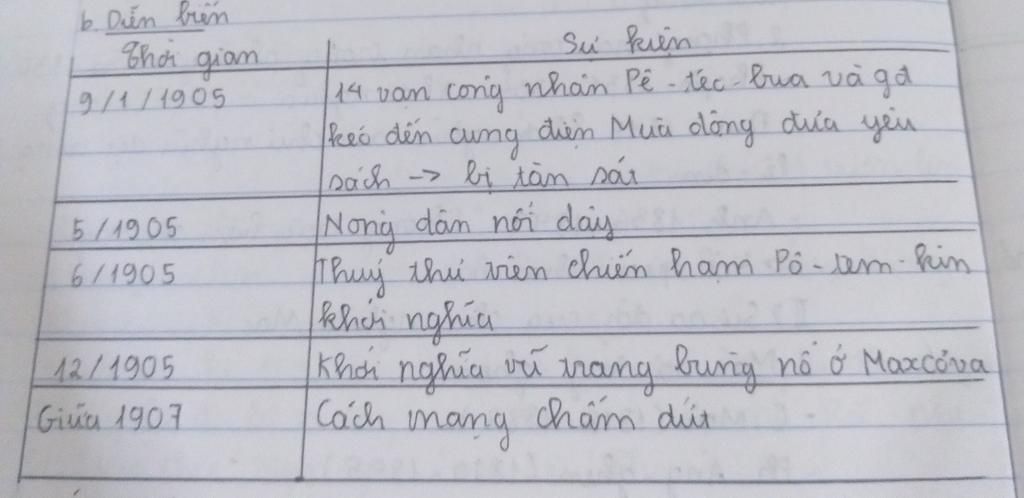 b. Diễn biến
Thời gian
Sự kiện
9/1/1905
14 vạn công nhân Pê-téc-bua và gđ
kéo đến cung điện Mùa đông đưa yêu
sách -> bị tàn sát
5/1905
Nông dân nổi dậy
6/1905
Thuỷ thủ trên chiến hạm Pô-tem-kin
khởi nghĩa
12/1905
Khởi nghĩa vũ trang bùng nổ ở Maxcơva
Giữa 1907
Cách mạng chấm dứt